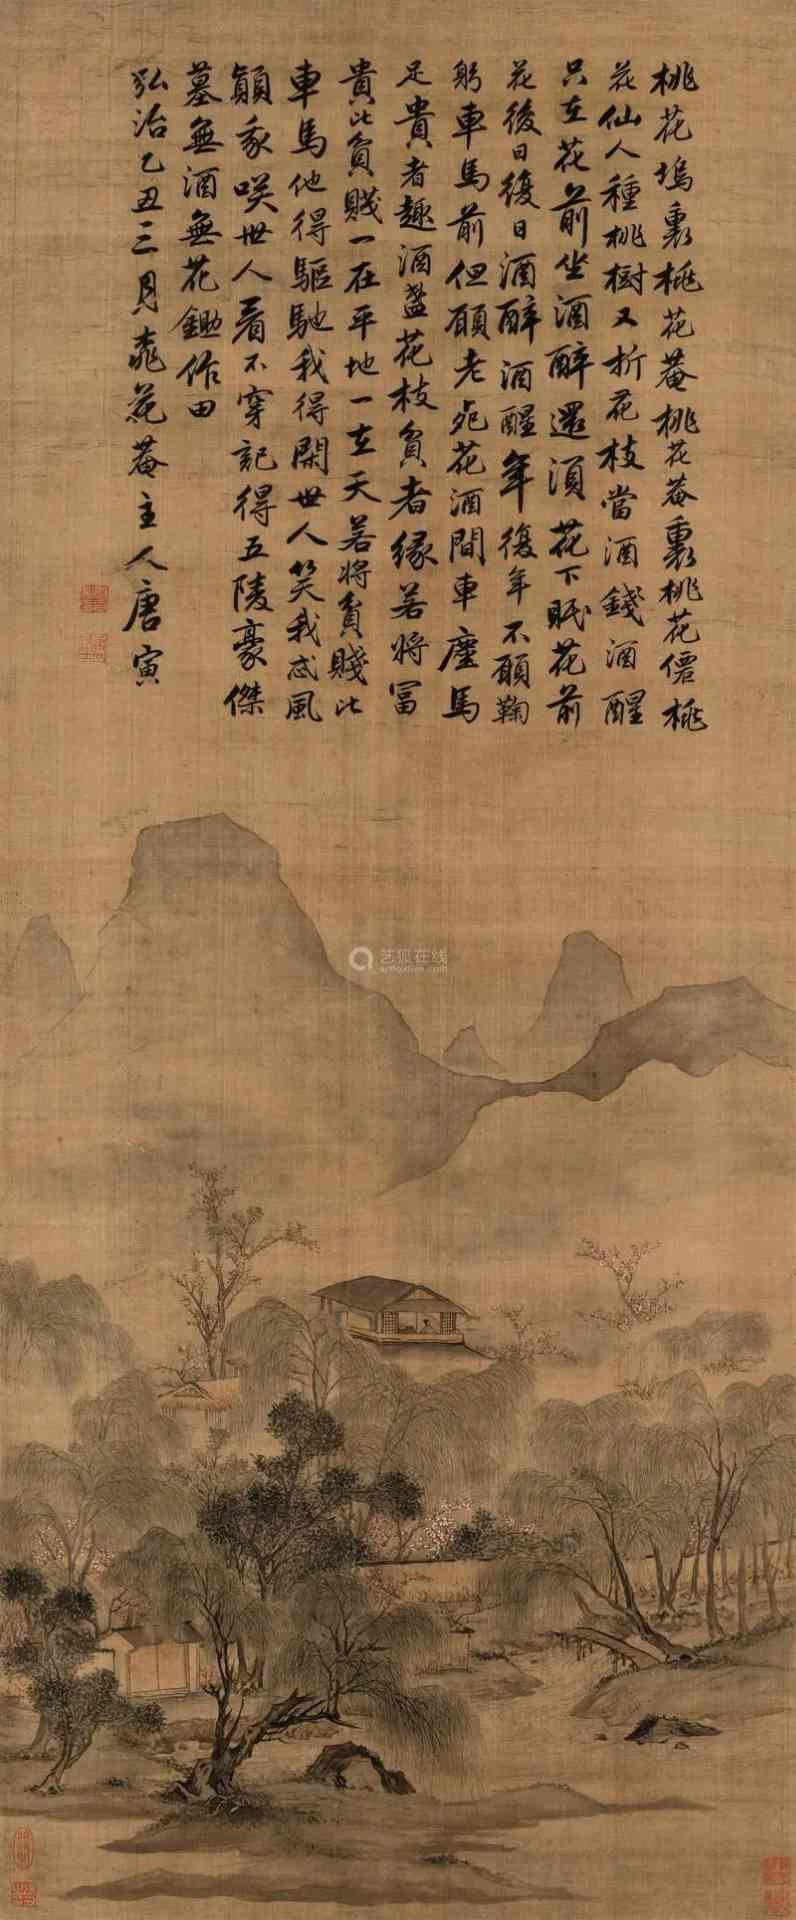 桃花塢裏桃花菴桃花菴裏桃花僊桃
花仙人種桃樹又折花枝當酒錢酒醒
只在花前坐酒醉還須花下眠花前
花後日復日酒醉酒醒年復年不願鞠
躬車馬前但願老死花酒間車塵馬
足貴者趣酒盞花枝貧者緣若將富
貴比貧賤一在平地一在天若將貧賤比
車馬他得驅馳我得閑世人笑我忒風
顛我咲世人看不穿記得五陵豪傑
墓無酒無花鋤作田
弘治乙丑三月桃花菴主人唐寅
艺狐在线
artfoxlive.com